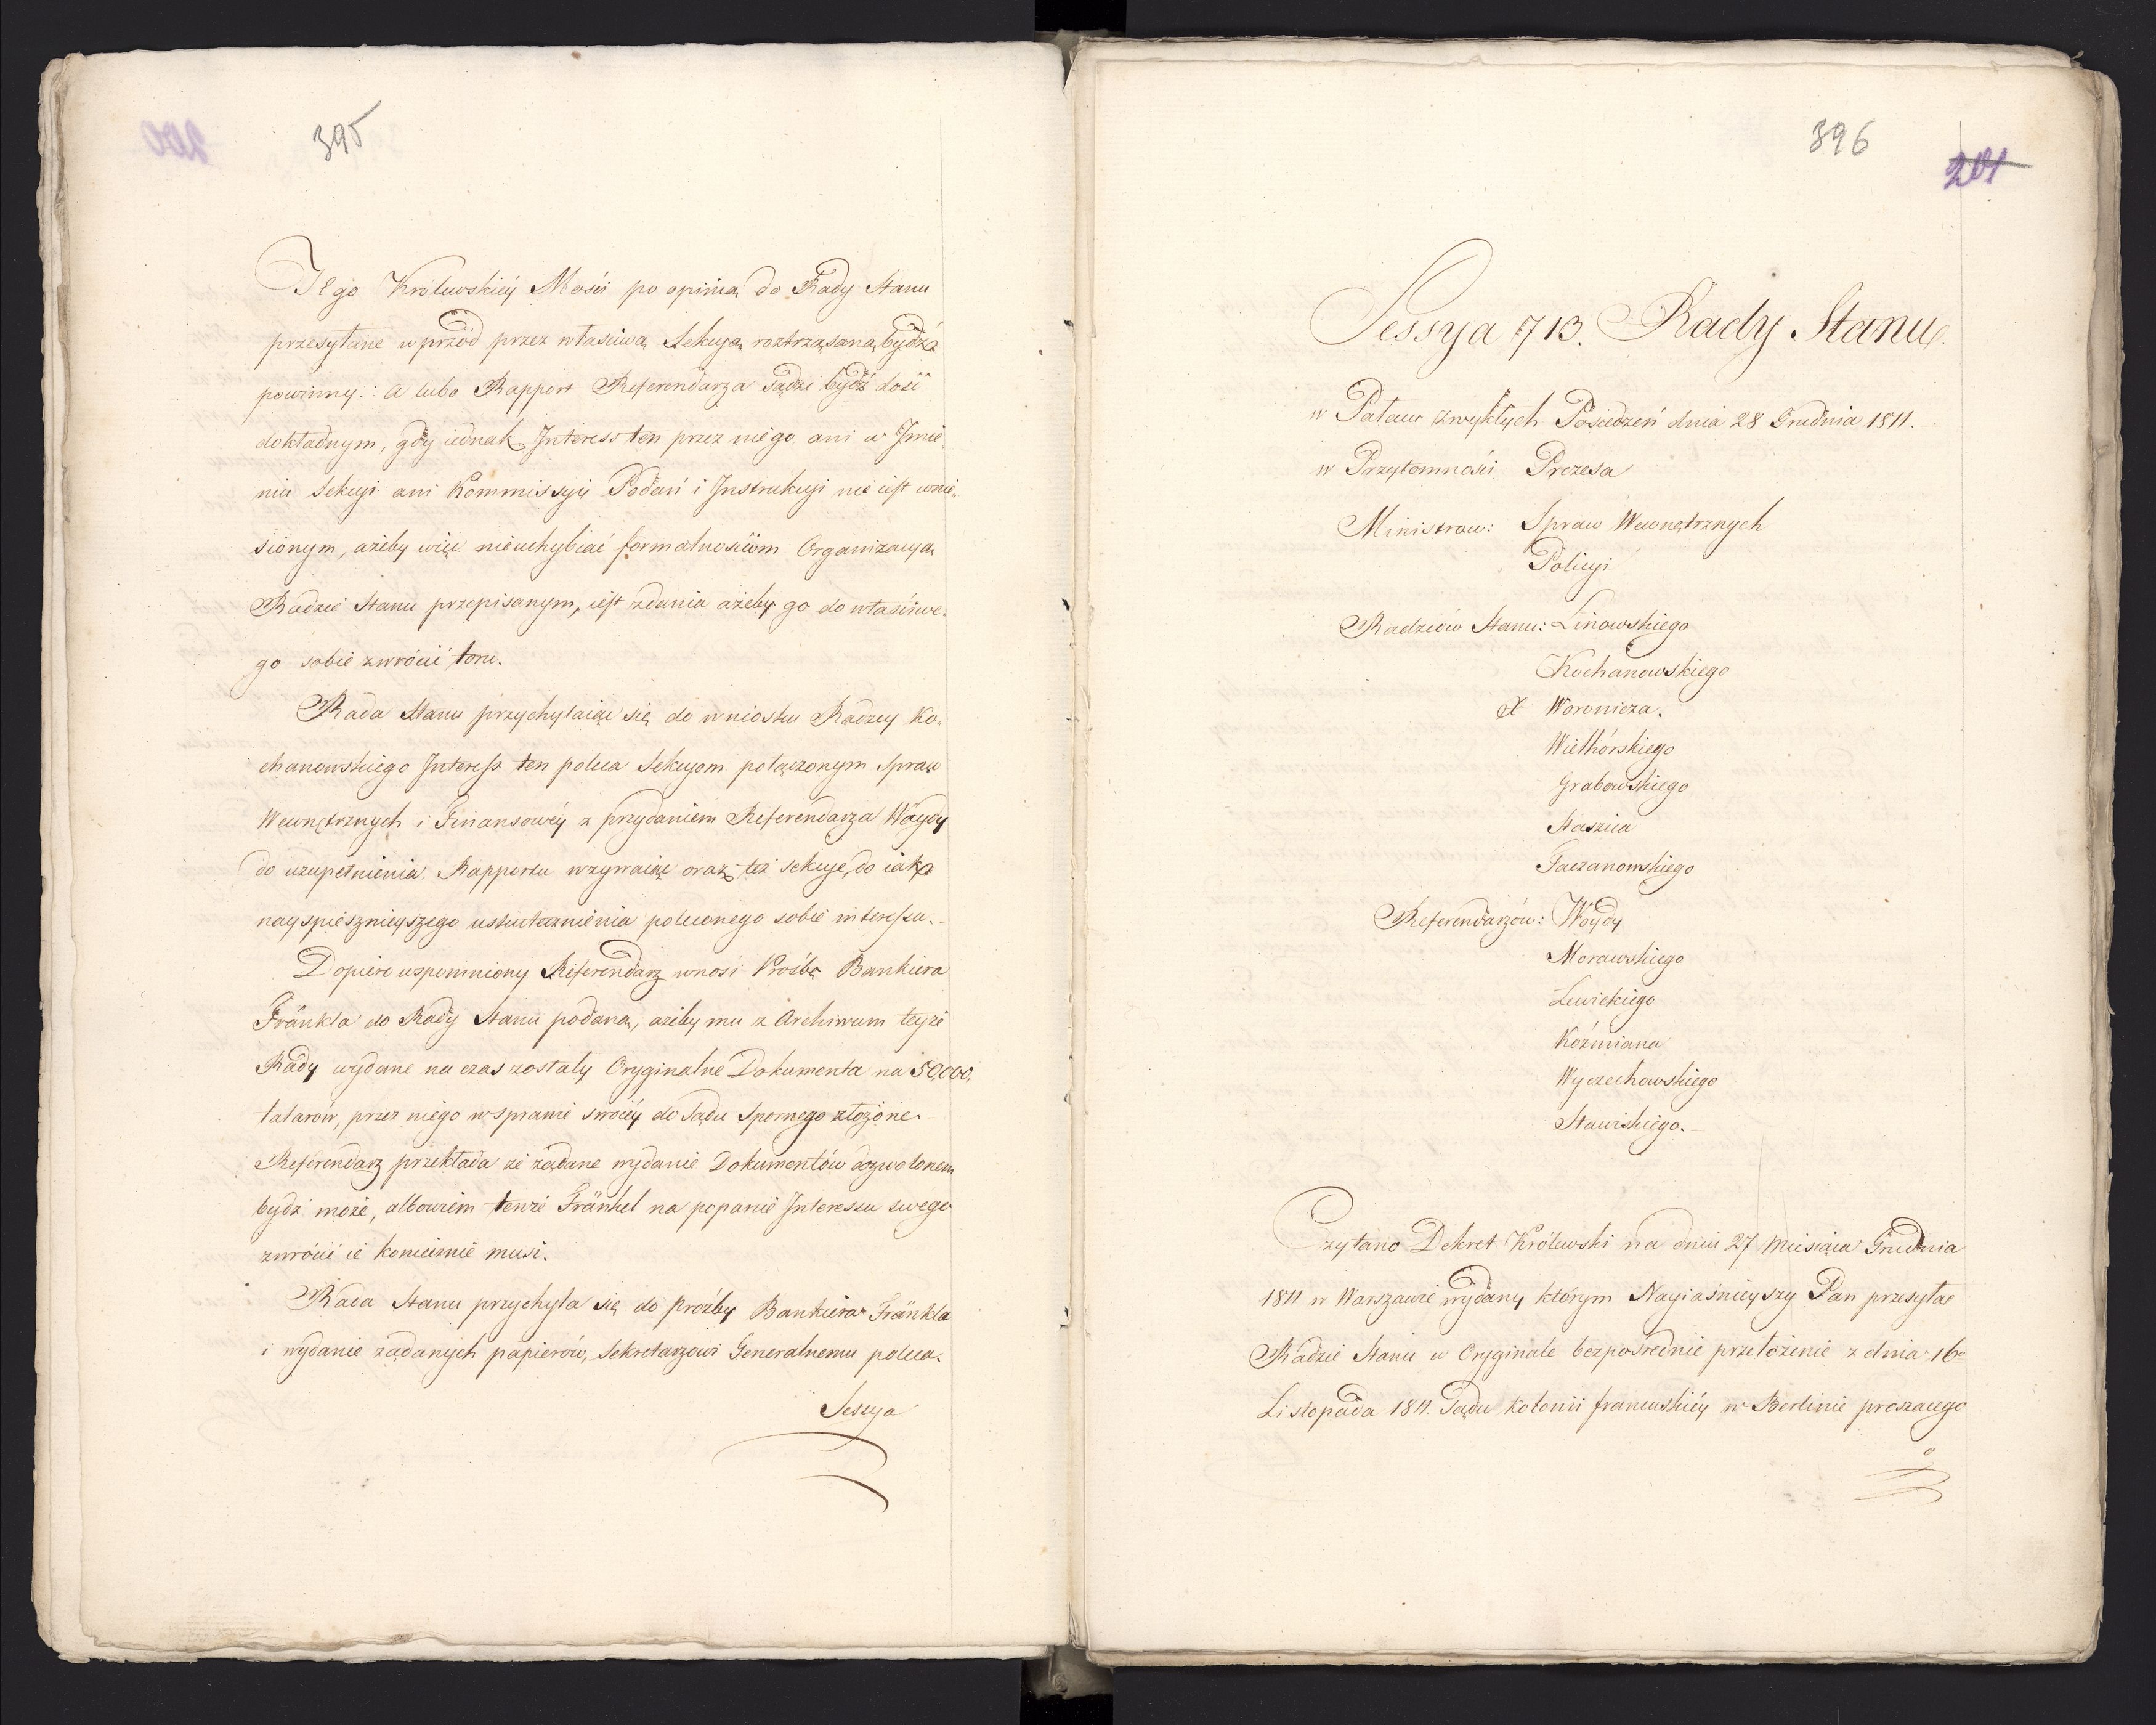 395
Jego Królewskiéy Mości po opinią do Rady Stanu
przesyłane wprzód przez właściwą Sekcyą roztrząsaną bydźź
powinny: a lubo Rapport Referendarza sądzi bydź dość
dokładnym, gdy iednak Interess ten przez niego ani w Imie„
niu Sekcyi ani Kommissyi Podań i Instrukcyi nie iest wnie„
sionym, ażeby więc nieuchybiać formalnościom Organizacyą
Radzie Stanu przepisanym, iest zdania ażeby go do właściwe„
go sobie zwrócić toru.
Rada Stanu przychylaiąc się do wniosku Radzcy Ko„
chanowskiego Interess ten poleca Sekcyom połączonym Spraw
Wewnętrznych i Finansowéy z przydaniem Referendarza Woydy
do uzupełnienia Rapportu wzywaiąc oraz też Sekcye, do iak
nayspiesznieyszego uskutecznienia poleconego sobie interessu.–
Dopiero wspomniony Referendarz wnosi Prośbę Bankiera
Fränkla do Rady Stanu podaną, ażeby mu z Archiwum teyże
Rady wydane na czas zostały Oryginalne Dokumenta na 50,000,
talarów, przez niego w sprawie swoiéy do Sądu Spornego złożone.–
Referendarz przekłada że żądane wydanie Dokumentów dozwolonem
bydź może, albowiem tenże Fränkel na poparcie Interessu swego
zwrócić ie koniecznie musi.
Rada Stanu przychyla się do proźby Bankiera Fränkla
i wydanie żądanych papierów, Sekretarzowi Generalnemu poleca.
Sessya
396
201
Sessya 713. Rady Stanu.
w Pałacu zwykłych Posiedzeń dnia 28 Grudnia 1811.
w Przytomności Prezesa
Ministrów: Spraw Wewnętrznych
Policyi
Radzców Stanu: Linowskiego
Kochanowskiego
X Woronicza.
Wielhórskiego
Grabowskiego
Staszica
Gaczanowskiego
Referendarzów: Woydy
Morawskiego
Lewickiego
Koźmiana
Wyczechowskiego
Stawiskiego.–
Czytano Dekret Królewski na dniu 27 Miesiąca Grudnia
1811 w Warszawie wydany którym Nayiaśnieyszy Pan przesyła
Radzie Stanu w Oryginale bezpośrednie przełożenie z dnia 16go
Listopada 1811. Sądu kolonii francuskiéy w Berlinie proszącego
o